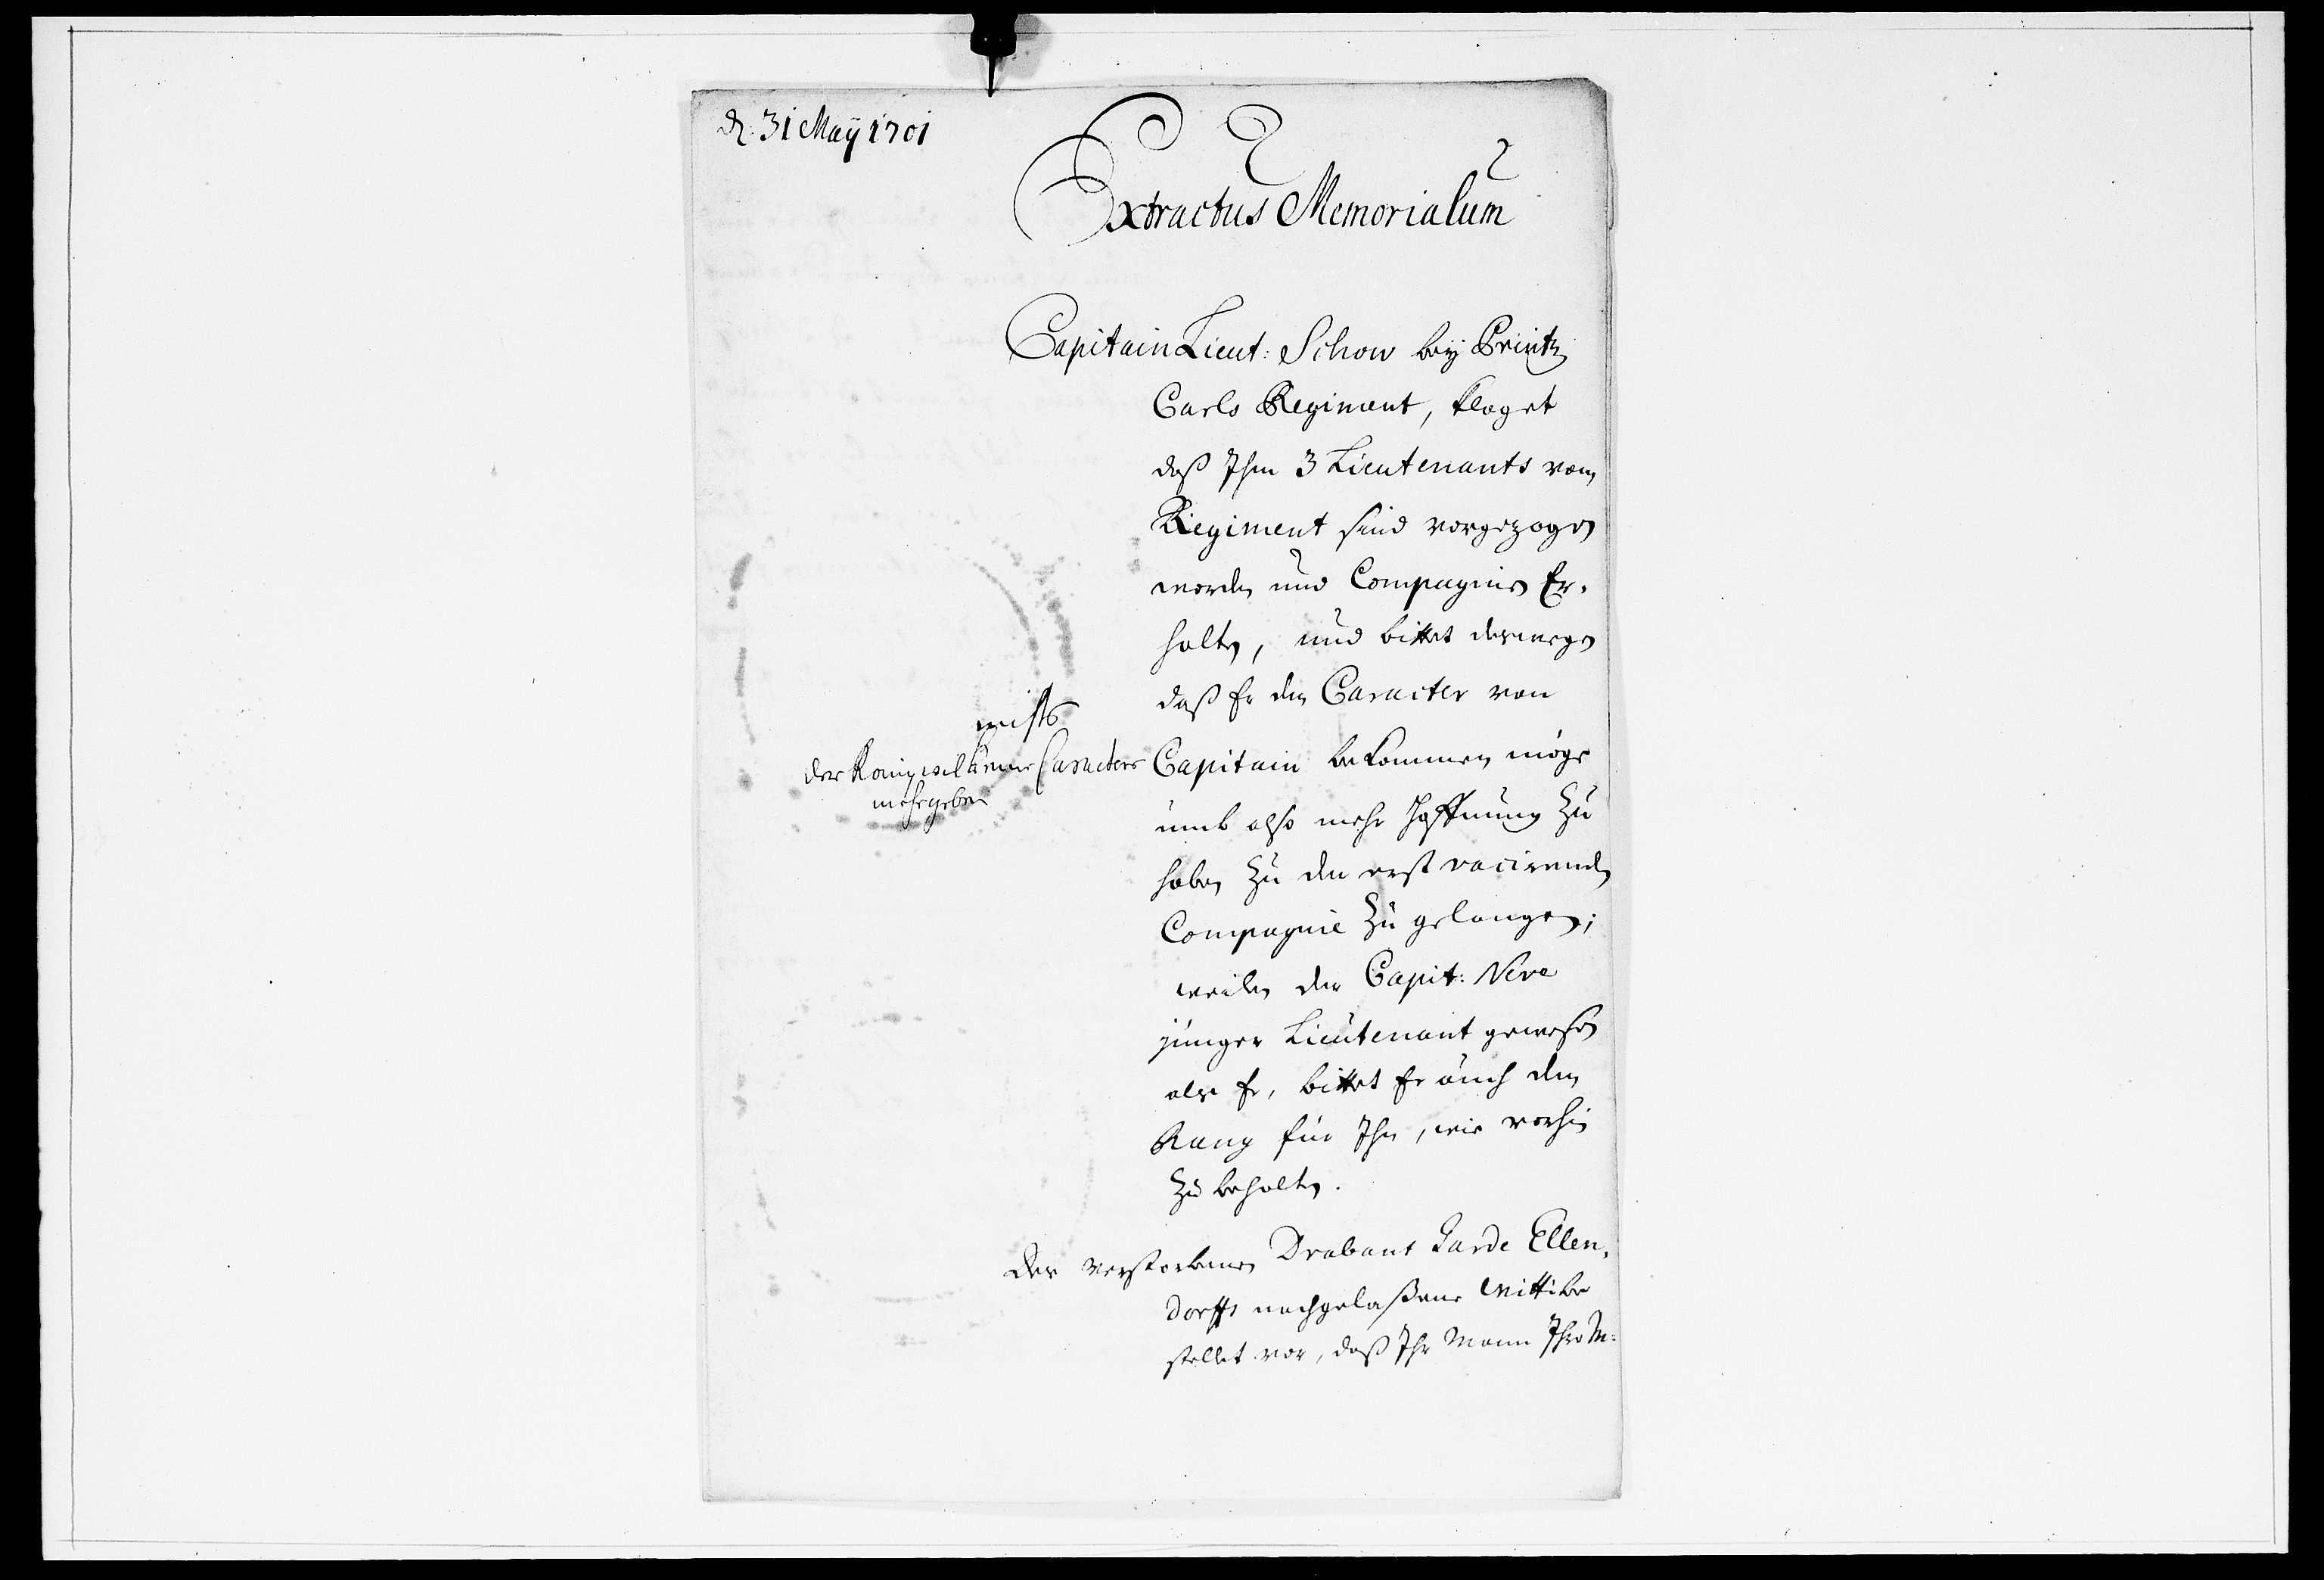 d. 31 Maÿ 1701
Extractus Memorialum
Capitain Lieut: Schow beÿ Printz
Carls Regiment, klaget
daß Ihm 3 Lieutenants vom
Regiment sind vorgezogen
worden und Compagnies Er-
halten, und bittet deswegen
daß Er den Caracter von
nichts
der König will keine Caracters
mehr geben
Capitain bekommen möge
umb also mehr Hoffnung zu
haben zu der erst vacirenden
Compagnie zu gelangen;
weilen der Capit: Neve
jünger Lieutenant gewesen
als Er, bittet Er auch den
Rang für Ihn, wie vorhin
zu behalten.
Des verstorbenen Drabant Garde Ellen-
dorffs nachgelaßene Wittibe
stellet vor, daß Ihr Mann Ihro M: